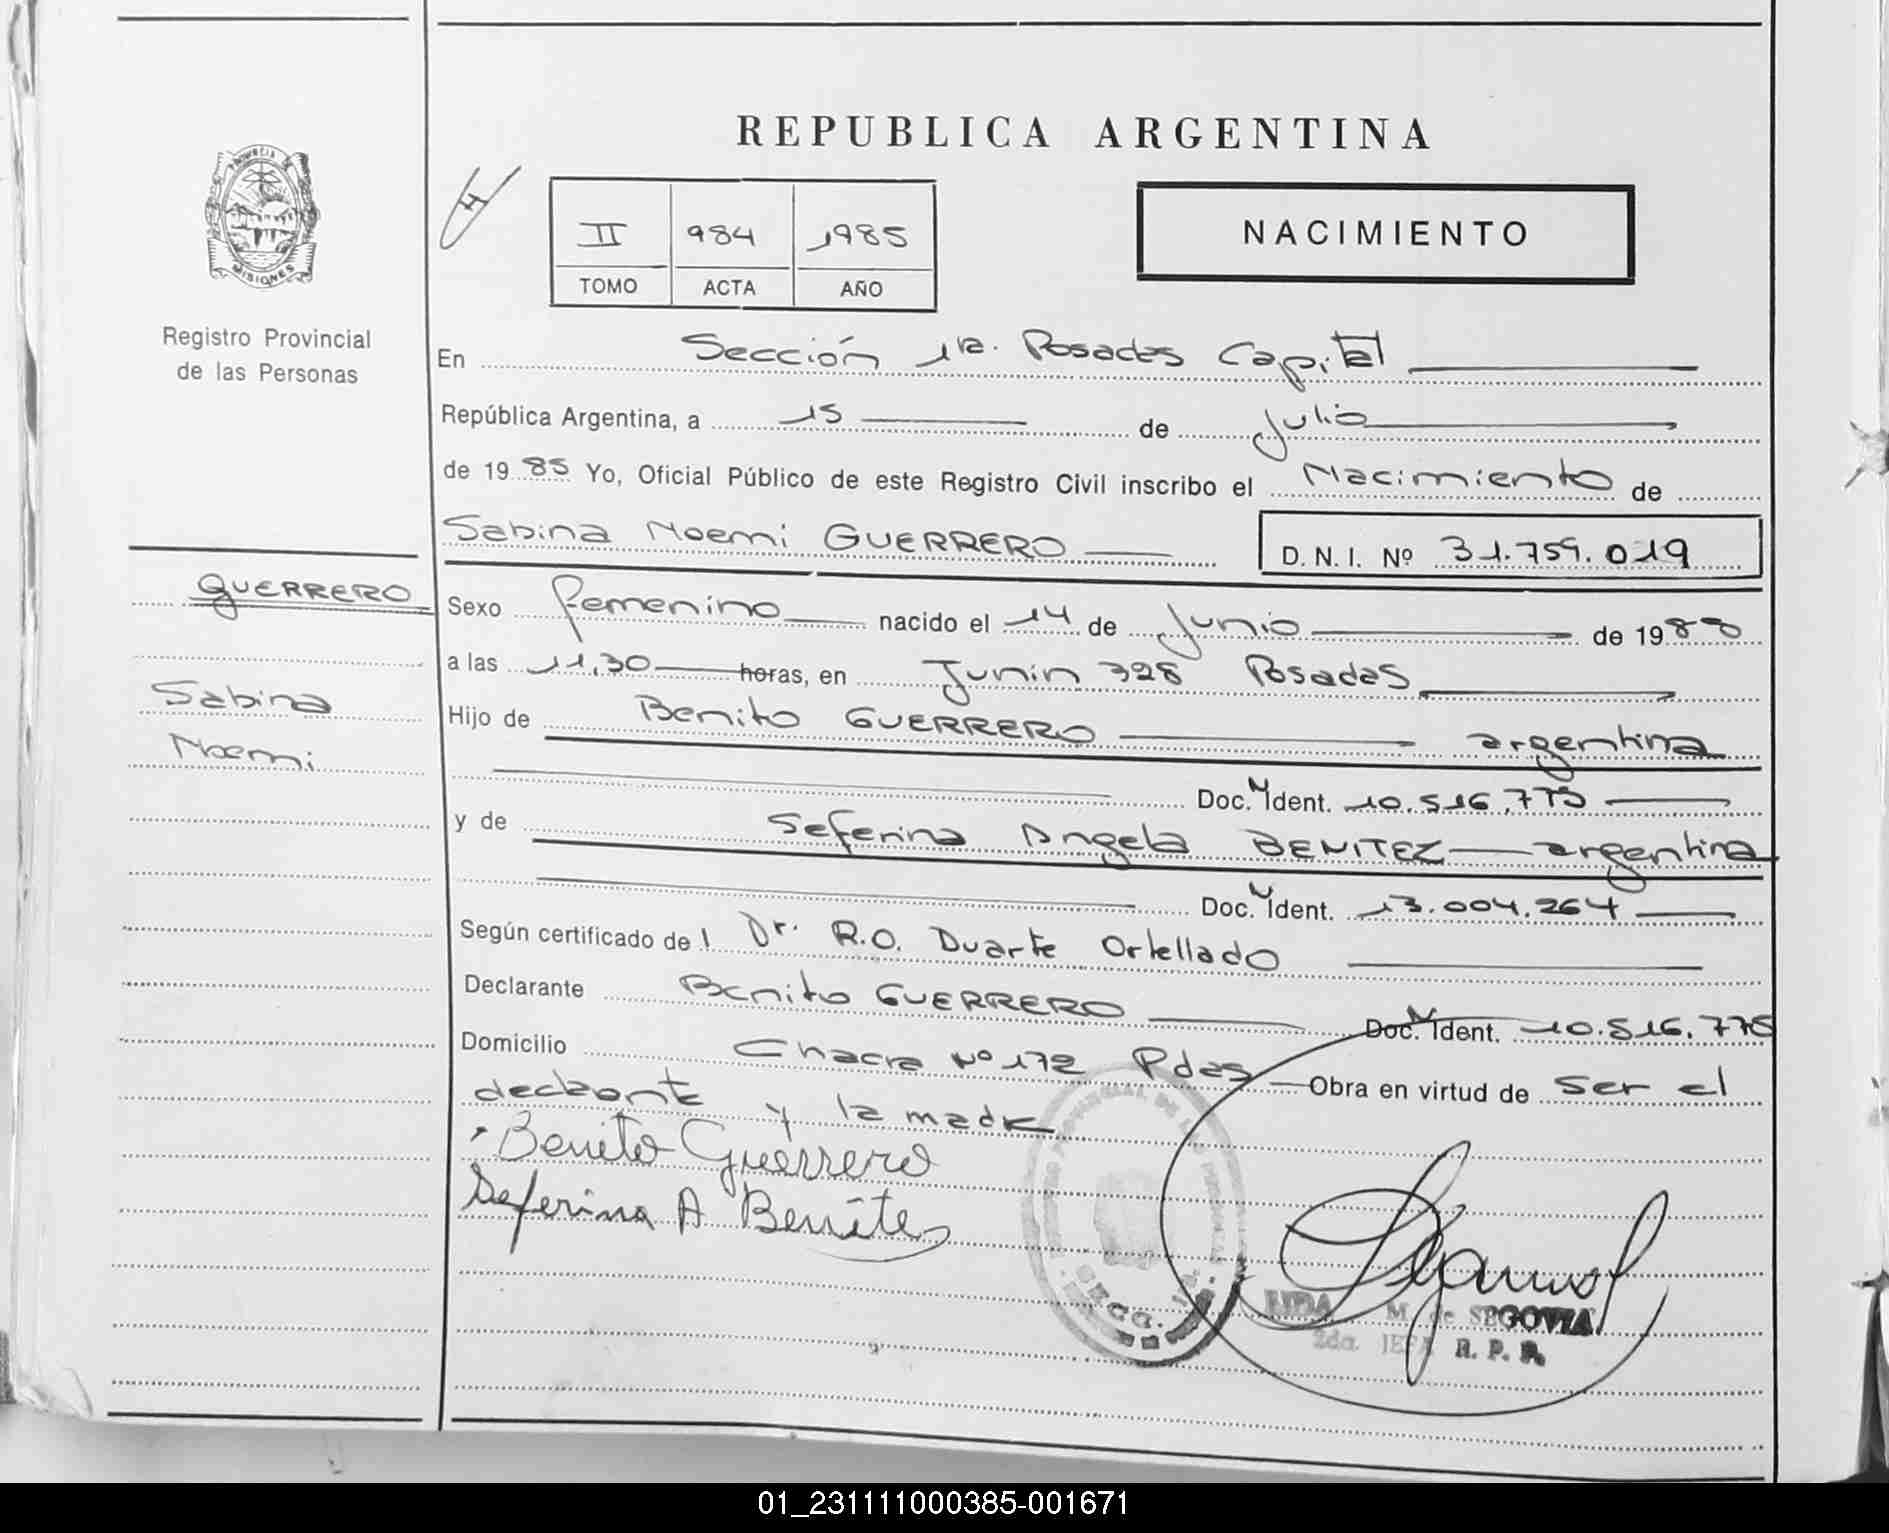 REPUBLICA ARGENTINA
PROVINCIA DE MISIONES
Registro Provincial
de las Personas
II 984 1985
TOMO ACTA AÑO
NACIMIENTO
En Sección 1ra. Posadas Capital
República Argentina, a 15 de Julio
de 1985 Yo, Oficial Público de este Registro Civil inscribo el Nacimiento de
Sabina Noemi GUERRERO D.N.I. Nº 31.759.019
GUERRERO
Sabina
Noemi
Sexo femenino nacido el 14 de Junio de 19
a las 11,30 horas, en Junin 328 Posadas
Hijo de Benito GUERRERO argentina
Doc. N Ident. 10.516.775
y de Seferina Angela BENITEZ argentina
Doc. N Ident. 13.004.264
Según certificado de l Dr. R.O. Duarte Ortellado
Declarante Benito GUERRERO Doc. N Ident. 10.516.775
Domicilio Chacra Nº 172 Pdas Obra en virtud de ser el
declarante y la madre
Benito Guerrero
Seferina A Benitez
REGISTRO PROVINCIAL DE LAS PERSONAS
SECC. 1ª
LIDA M. de SEGOVIA
2da. JEFA R. P. P.
01_231111000385-001671